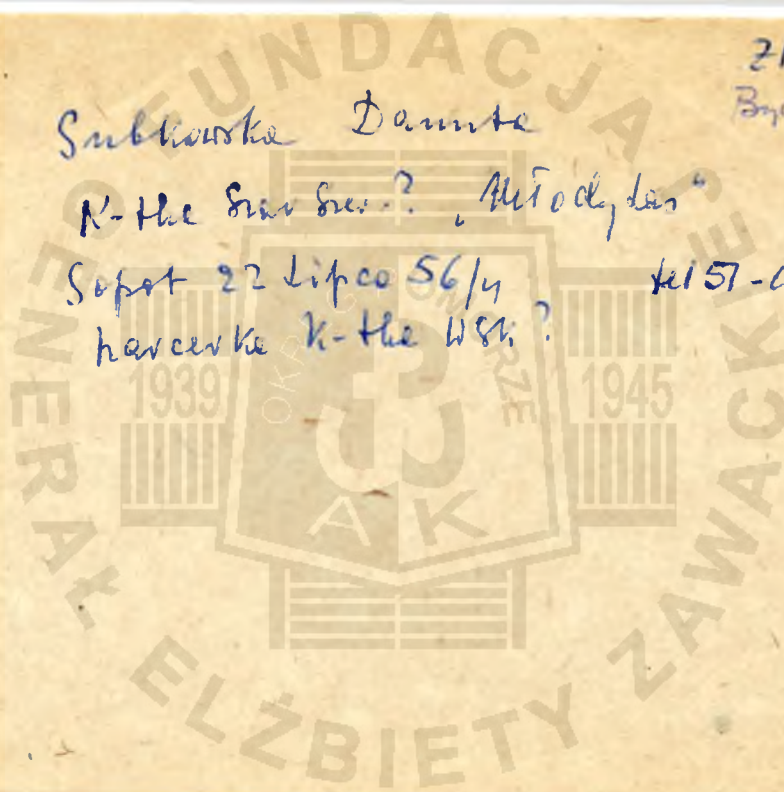 Subkowska Danuta
K-tka Szar Szer.? „Młody Las"
Sopot 22 Lipca 56/4 tel 57-
harcerka K-tka WSK?
FUNDACJA GENERAŁ ELŻBIETY ZAWACKIEJ
OKRĘG POMORZE
1939 1945
AK